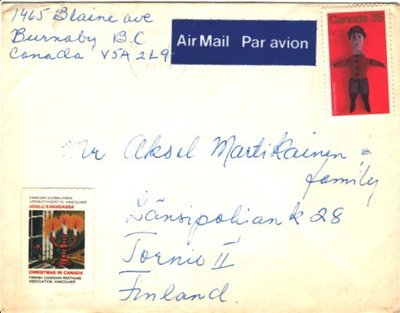 1465 Blaine ave
Burnaby B.C
Canada V5A 2L9
Air Mail Par avion
Canada 35
Mr Aksel Martikainen &
family
Länsipohjank 28
Tornio II
Finland.
KANADAN SUOMALAINEN
LEPOKOTIYHDISTYS VANCOUVER
JOULU KANADASSA
CHRISTMAS IN CANADA
FINNISH CANADIAN RESTHOME
ASSOCIATION, VANCOUVER